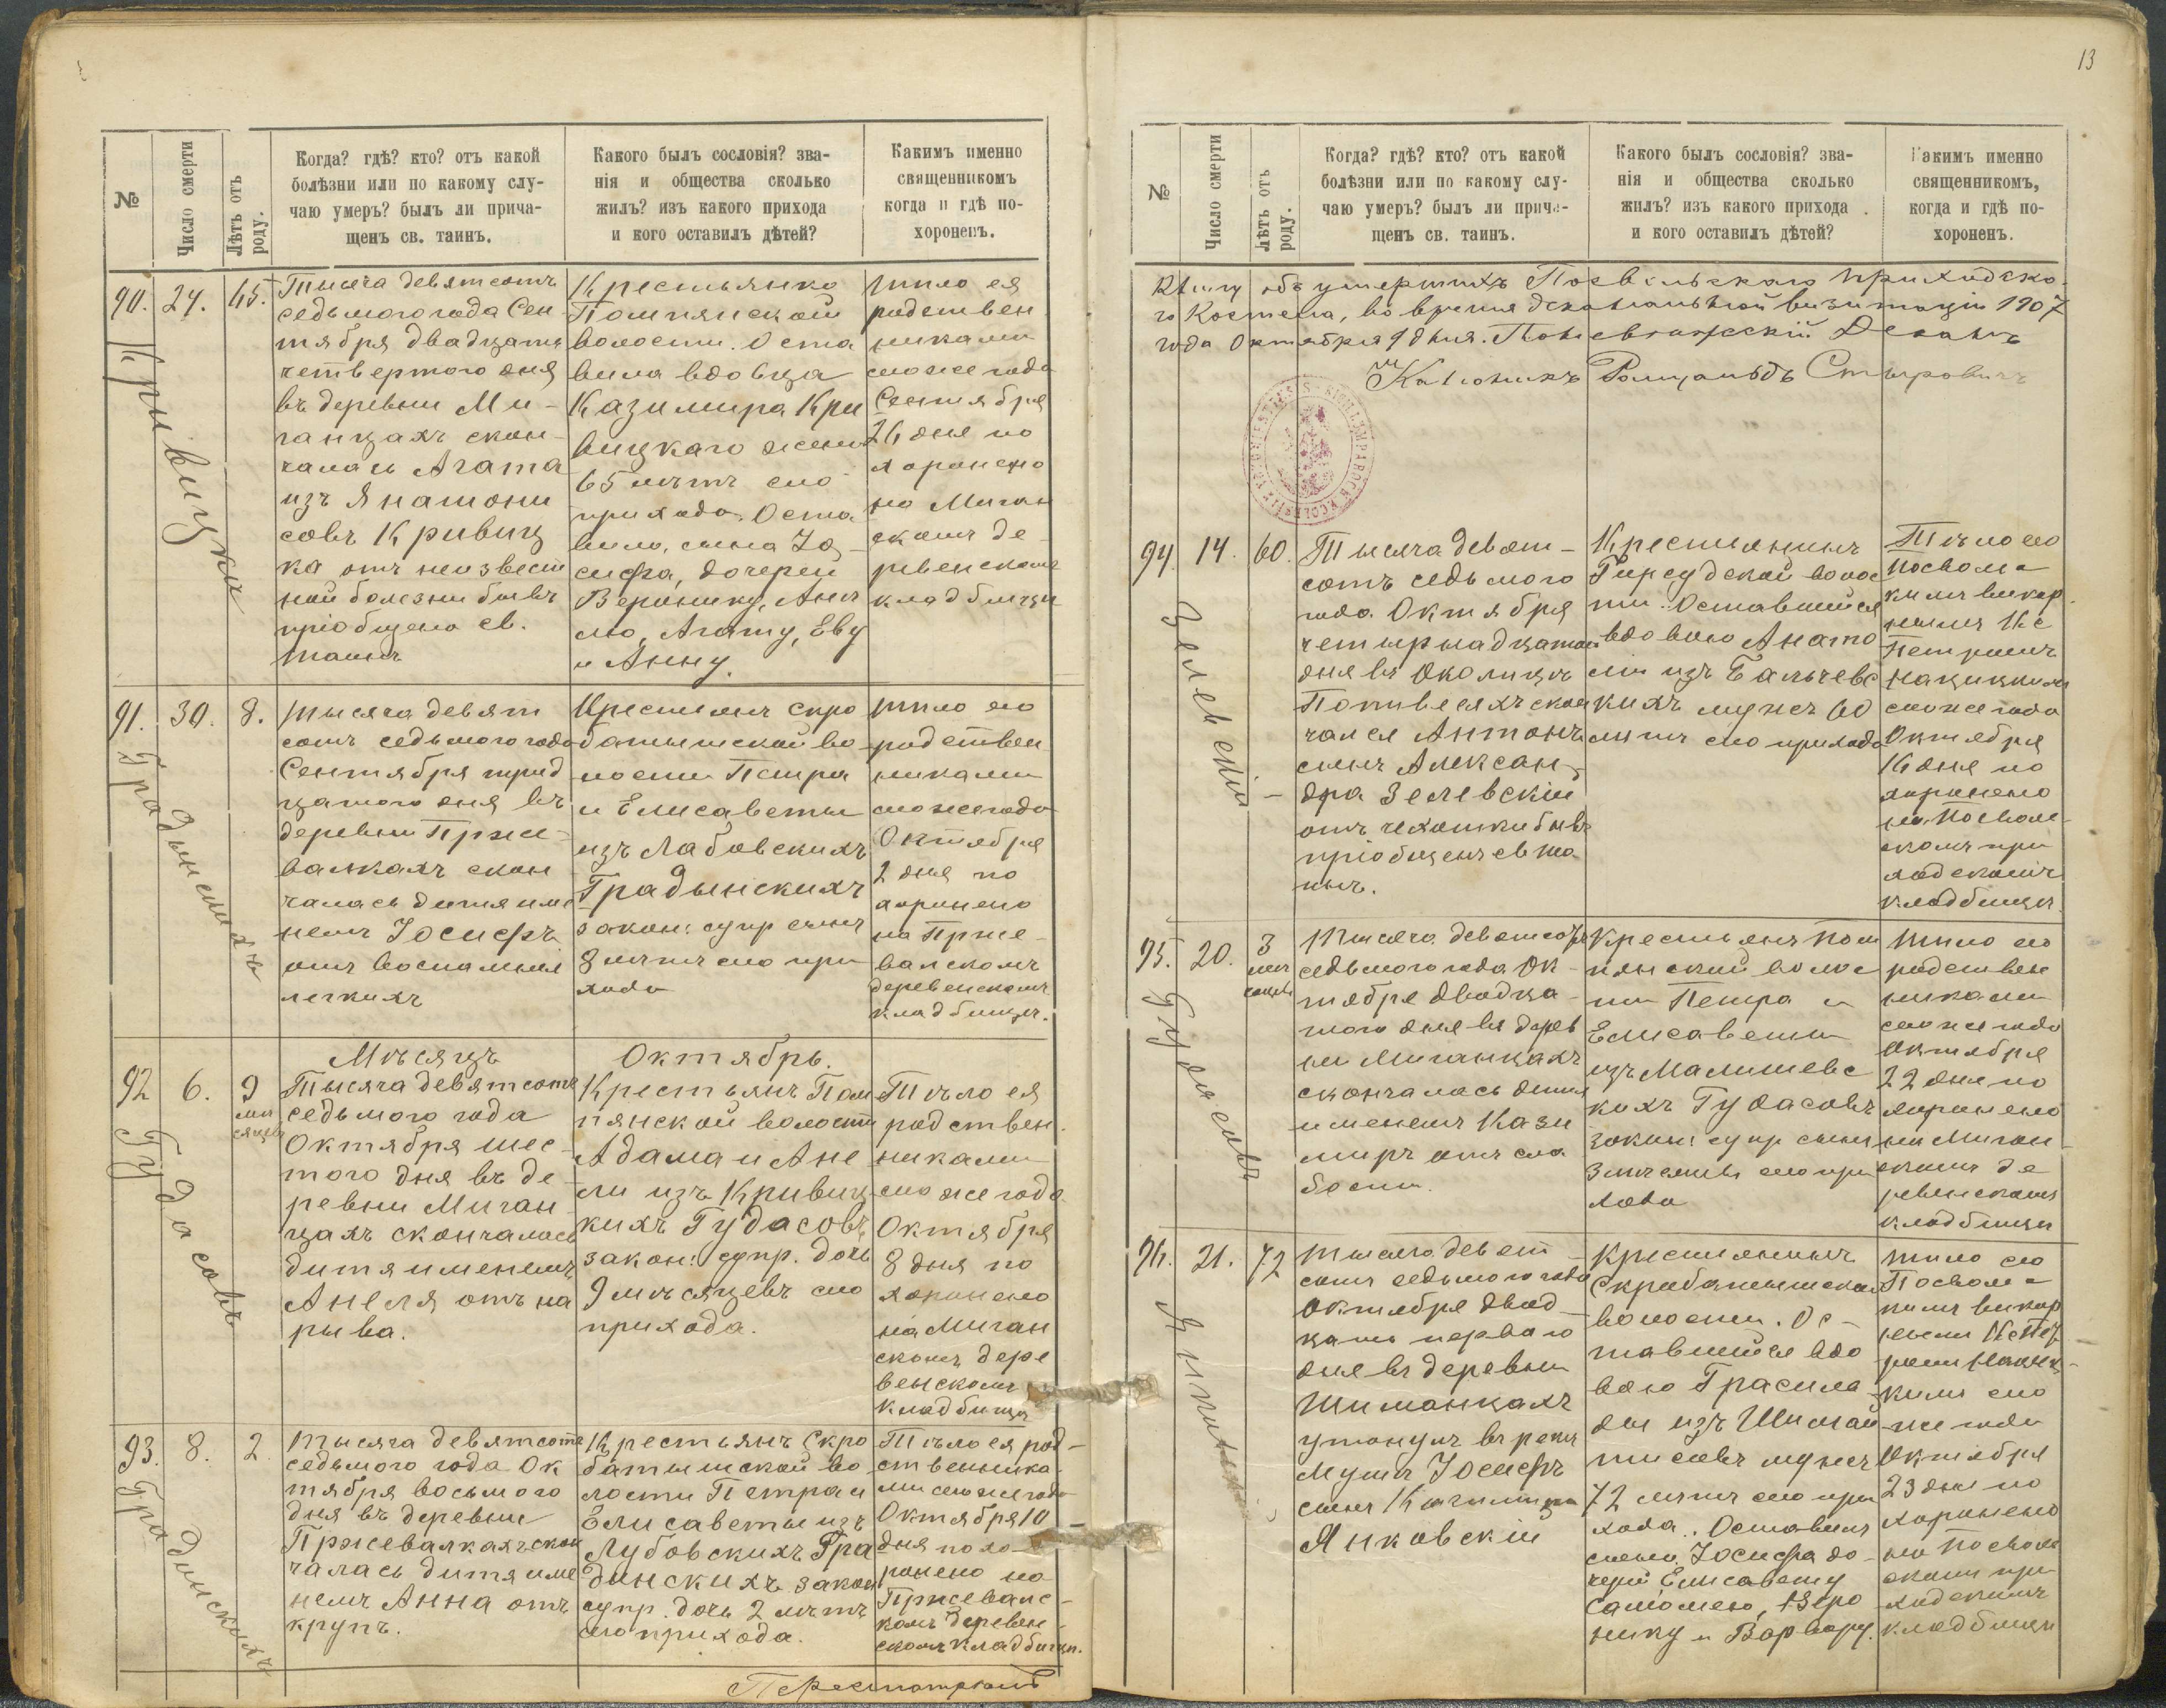 13
№
Число смерти
Лѣтъ отъ роду.
Когда? гдѣ? кто? отъ какой
болѣзни или по какому слу-
чаю умеръ? былъ ли прича-
щенъ св. таинъ.
Какого былъ сословія? зва-
нія и общества сколько
жилъ? изъ какого прихода
и кого оставилъ дѣтей?
Какимъ именно
священникомъ
когда и гдѣ по-
хороненъ.
90. 24. 65.
Кривицка
Тысяча девятсотъ
седьмого года Сен
тября двадцать
четвертого дня
въ деревни Ми-
ганцахъ скон-
чалась Агата
изъ Янатони
совъ Кривиц
ка отъ неизвест
ной болезни бывъ
пріобщена св.
таинъ
Крестьянка
Помпянской
волости. Оста
вила вдовца
Казимира Кри
вицкаго жена
65 лѣтъ сего
прихода. Оста
вила, сына Іо-
сифа, дочерей
Веронику, Ане
лю, Агату, Еву
и Анну.
Тѣло ея
родствен
никами
сего же года
Сентября
26 дня по
хоронено
на Миган
скомъ де-
ревенскомъ
кладбищи
91. 30. 8.
Градынскихъ
Тысяча девят
сотъ седьмого года
Сентября трид
цатого дня въ
деревни Прже-
валкахъ скон
чалась дитя име
немъ Іосифъ
отъ воспаленія
легкихъ
Крестьянъ Скро
батышской во-
лости Петра
и Елисаветы
изъ Лабовскихъ
Градынскихъ
закон: супр сынъ
8 лѣтъ сего при
хода
Тѣло его
родствен
никами
сего же года
Октября
2 дня по
хоронено
на Прже-
валскомъ
деревенскомъ
кладбищи.
Мѣсяцъ Октябрь.
92 6. 9
мѣ
сяцевъ
Гудасовъ
Тысяча девятсотъ
седьмого года
Октября шес-
того дня въ де-
ревни Миган
цахъ скончалась
дитя именемъ
Анеля отъ на
рыва.
Крестьянъ Пом
пянской волости
Адама и Ане
ли изъ Кривиц
кихъ Гудасовъ
закон: супр. дочь
9 мѣсяцевъ сего
прихода.
Тѣло ея
родствен.
никами
сего же года
Октября
8 дня по
хоронено
на Миган
скомъ дере
венскомъ
кладбищи
93. 8. 2
Градинскихъ
Тысяча девятсотъ
седьмого года Ок
тября восьмого
дня въ деревни
Пржевалкахъ скон
чалась дитя име
немъ Анна отъ
крупъ.
Крестьянъ Скро
батышской во
лости Петра и
Елисаветы изъ
Лубовскихъ Гра
динскихъ закон
супр. дочь 2 лѣтъ
сего прихода.
Тѣло ея род-
ственника-
ми сего же года
Октября 10
дня похо-
ронено на
Пржевалс-
комъ деревен
скомъ кладбищи.
№
Число смерти
Лѣтъ отъ роду.
Когда? гдѣ? кто? отъ какой
болѣзни или по какому слу-
чаю умеръ? былъ ли прича-
щенъ св. таинъ.
Какого былъ сословія? зва-
нія и общества сколько
жилъ? изъ какого прихода
и кого оставилъ дѣтей?
Какимъ именно
священникомъ,
когда и гдѣ по-
хороненъ.
Книгу объ умершихъ Посвольскаго приходско-
го Костела, во время деканальной визитаціи 1907
года Октября 9 дня. Поневѣжскій Деканъ
Каноникъ Ромуальдъ Стыровичъ
94. 14. 60.
Зелевскій
Тысяча девят-
сотъ седьмого
года Октября
четырнадцатого
дня въ Околицѣ
скон
чался Антонъ
сынъ Алексан-
дра Зелевскій
отъ чехотки бывъ
пріобщенъ св та-
инъ.
Крестьянинъ
волос
ти. Оставшейся
вдовою Анато
ли изъ Бальчевс
кихъ мужъ 60
лѣтъ сего прихода
Тѣло его
Посвольс
кимъ викар
нымъ Кс
Петромъ
сего же года
Октября
16 дня по
хоронено
на Посволь-
скомъ при
ходскомъ
кладбищи.
95. 20. 3
мѣ
сяцевъ
Гудасовъ
Тысяча девятсотъ
седьмого года Ок-
тября двадца-
того дня въ дерев
ни Миганцахъ
скончалась дитя
именемъ Кази
миръ отъ сла
бости.
Крестьянъ Пом
пянской волос
ти Петра и
Елисаветы
изъ Малишевс
кихъ Гудасовъ
закон: супр сынъ
3 мѣсяцевъ сего при
хода
Тѣло его
родствен
никами
сего же года
Октября
22 дня по
хоронено
на Миган-
скомъ де
ревенскомъ
кладбищи
96. 21. 72
Янковскій
Тысяча девят
сотъ седьмого года
Октября двад-
цать перваго
дня въ деревни
Шиманцахъ
утонулъ въ реки
Муши Іосифъ
сынъ Казимира
Янковскій
Крестьянинъ
Скробатышской
волости. Ос-
тавшейся вдо
вою Грасила
ды изъ Шиман
тисовъ мужъ
72 лѣтъ сего при
хода. Оставилъ
сына Іосифа до-
черей Елисавету
Саломею, Веро
нику и Варвару.
Тѣло его
Посвольс
кимъ викар
нымъ Кс Пет
ромъ
кимъ сего
же года
Октября
23 дня по
хоронено
на Посволь
скомъ при
ходскомъ
кладбищи